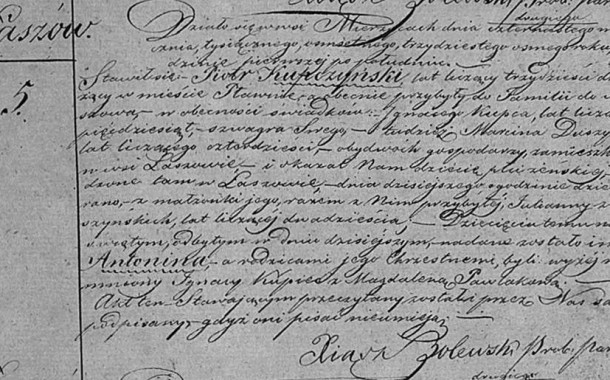 Laszów.
5.
drugiego
Działo się we wsi Mierzycach dnia czternastego
cznia, tysiącznego, osmsetnego, trzydziestego osmego rok
dzinie pierwszej po południu.
Stawił się Piotr Kupczyński, lat liczący trzydzieści
żący w mieście Stawinie, obecnie przybyły do Familii do
szowa, w obecności świadków, Ignacego Kupca, lat licz
pięćdziesiąt, szwagra Swego, tudzież Marcina Dusz
lat liczącego czterdzieści, obydwóch gospodarzy, zamieszk
w wsi Laszowie, i okazał Nam dziecię płci żeńskiej,
dzone tam w Laszowie, dnia dzisiejszego o godzinie
rano, z małżonki jego, razem z Nim przybyłej Julianny z
szyńskich, lat liczącej dwadzieścia, Dziecięciu temu n
świętym, odbytym w dniu dzisiejszym, nadane zostało im
Antonina, a rodzicami jego Chrzestnemi, byli wyżej
mniony Ignacy Kupiec z Magdaleną Pawlakową.
Akt ten Stawającym przeczytany został i przez Nas sa
podpisany, gdyż oni pisać nieumieją.
Xiądz Bolewski prob. par
drugiego